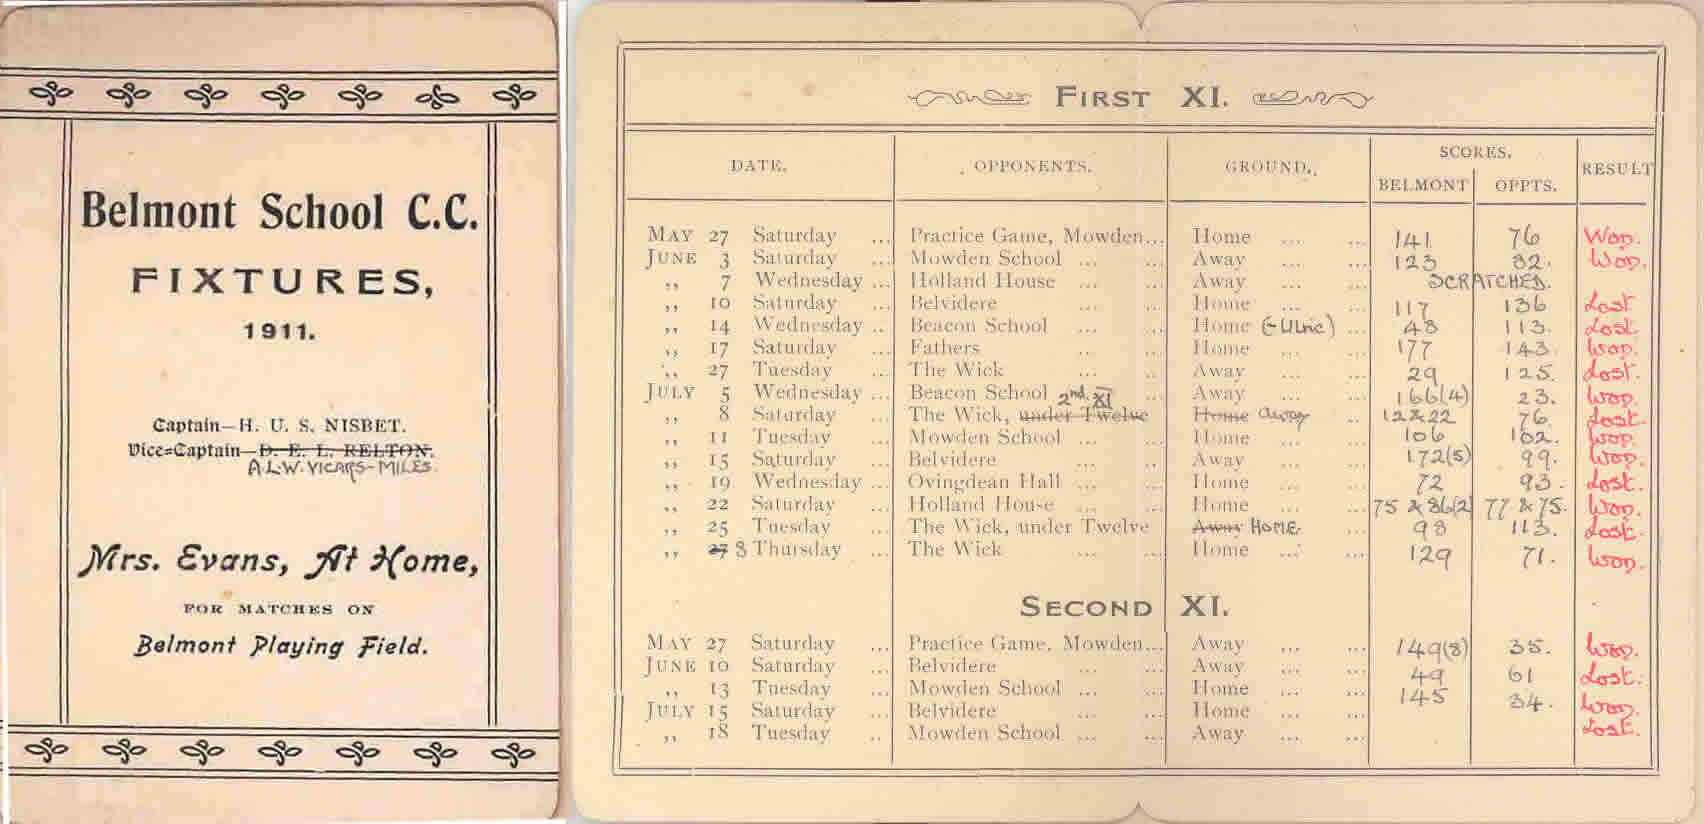 Belmont School C.C.
FIXTURES,
1911.
Captain—H. U. S. NISBET.
Vice=Captain—D. E. L. RELTON.
A.L.W. VICARS-MILES.
Mrs. Evans, At Home,
FOR MATCHES ON
Belmont Playing Field.
FIRST XI.
DATE. OPPONENTS. GROUND. SCORES. RESULT
BELMONT OPPTS.
MAY 27 Saturday ... Practice Game, Mowden... Home ... ... 141 76 Won.
JUNE 3 Saturday ... Mowden School ... ... Away ... ... 123 82. Won.
,, 7 Wednesday ... Holland House ... ... Away ... ... SCRATCHED.
,, 10 Saturday ... Belvidere ... ... Home ... ... 117 136 Lost
,, 14 Wednesday .. Beacon School ... ... Home (-Ulric) ... 48 113. Lost.
,, 17 Saturday ... Fathers ... ... Home ... ... 177 143. Won.
,, 27 Tuesday ... The Wick ... .. Away ... ... 29 125. Lost.
JULY 5 Wednesday ... Beacon School 2nd. XI ... Away ... ... 166(4) 23. Won.
,, 8 Saturday ... The Wick, under Twelve Home away .. 12 & 22 76. Lost.
,, 11 Tuesday ... Mowden School ... ... Home ... ... 106 102. Won.
,, 15 Saturday ... Belvidere ... .. Away ... ... 172(5) 99. Won.
,, 19 Wednesday ... Ovingdean Hall ... ... Home ... ... 72 93. Lost.
,, 22 Saturday ... Holland House ... ... Home ... ... 75 & 86(2) 77 & 75. Won.
,, 25 Tuesday ... The Wick, under Twelve Away HOME. ... 98 113. Lost.
,, 27 8 Thursday ... The Wick ... ... Home ... ... 129 71. Won.
SECOND XI.
MAY 27 Saturday ... Practice Game, Mowden... Away ... ... 149(8) 35. Won.
JUNE 10 Saturday ... Belvidere ... ... Away ... ... 49 61 Lost.
,, 13 Tuesday ... Mowden School ... ... Home ... ... 145 34. Won.
JULY 15 Saturday ... Belvidere ... ... Home ... ... Lost.
,, 18 Tuesday .. Mowden School ... ... Away ... ...